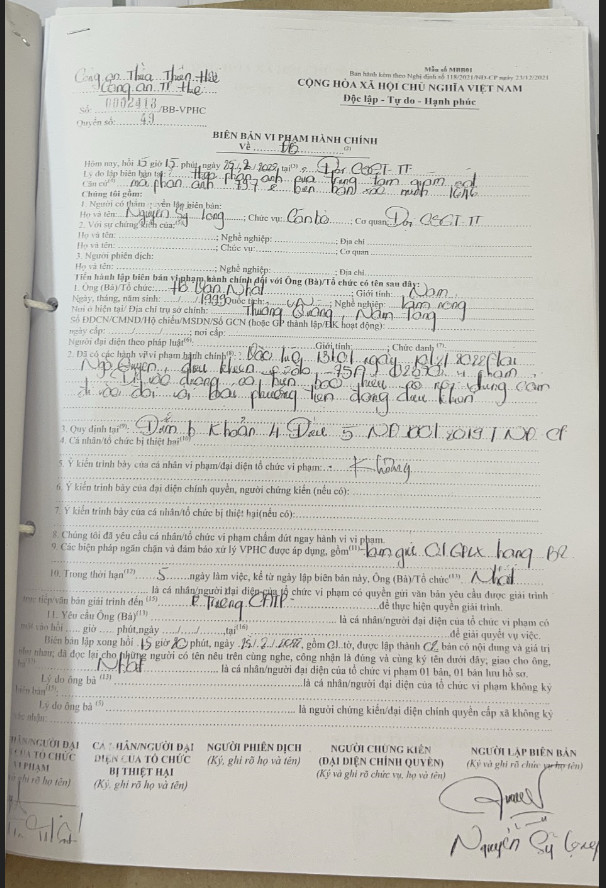 Mẫu số MBB01
Ban hành kèm theo Nghị định số 118/2021/NĐ-CP ngày 23/12/2021
Công an Thừa Thiên Huế
Công an TP Huế
CỘNG HÒA XÃ HỘI CHỦ NGHĨA VIỆT NAM
Độc lập - Tự do - Hạnh phúc
Số: 0002418/BB-VPHC
Quyển số: 49
BIÊN BẢN VI PHẠM HÀNH CHÍNH
Về
Hôm nay, hồi 15 giờ 15 phút, ngày 25/2/2022, tại Đội CSGT-TT
Lý do lập biên bản tại phản ánh qua trung tâm giám sát
Căn cứ phản ánh biên bản xác minh
Chúng tôi gồm:
1. Người có thẩm quyền lập biên bản:
Họ và tên: Nguyễn Sỹ Long; Chức vụ: Cán bộ; Cơ quan: Đội CSGT-TT
2. Với sự chứng kiến của:
Họ và tên: ; Nghề nghiệp: ; Địa chỉ
Họ và tên: ; Chức vụ: ; Cơ quan
3. Người phiên dịch:
Họ và tên: ; Nghề nghiệp: ; Địa chỉ
Tiến hành lập biên bản vi phạm hành chính đối với Ông (Bà)/Tổ chức có tên sau đây:
1. Ông (Bà)/Tổ chức: Hồ Văn Nhật; Giới tính: Nam
Ngày, tháng, năm sinh: / /1999 Quốc tịch: VN; Nghề nghiệp: làm nông
Nơi ở hiện tại/ Địa chỉ trụ sở chính: Thượng Quảng, Nam Đông
Số ĐDCN/CMND/Hộ chiếu/MSDN/Số GCN (hoặc GP thành lập/ĐK hoạt động):
ngày cấp: / / ; nơi cấp:
Người đại diện theo pháp luật(6) Giới tính: Chức danh (7)
2. Đã có các hành vi vi phạm hành chính: Vào lúc 13h01 ngày 2022 tại
Ngô Quyền, điều khiển ô tô 75A vi phạm
Đi vào đường có biển báo hiệu có nội dung cấm
đi vào đối với loại phương tiện đang điều khiển
3. Quy định tại: Điểm b Khoản 4 Điều 5 NĐ 100/2019/NĐ-CP
4. Cá nhân/tổ chức bị thiệt hại
5. Ý kiến trình bày của cá nhân vi phạm/đại diện tổ chức vi phạm: Không
6. Ý kiến trình bày của đại diện chính quyền, người chứng kiến (nếu có):
7. Ý kiến trình bày của cá nhân/tổ chức bị thiệt hại(nếu có):
8. Chúng tôi đã yêu cầu cá nhân/tổ chức vi phạm chấm dứt ngay hành vi vi phạm.
9. Các biện pháp ngăn chặn và đảm bảo xử lý VPHC được áp dụng, gồm(11) tạm giữ 01 GPLX hạng B2
10. Trong thời hạn(12) 5 ngày làm việc, kể từ ngày lập biên bản này, Ông (Bà)/Tổ chức(13) Nhật
là cá nhân/người đại diện của tổ chức vi phạm có quyền gửi văn bản yêu cầu được giải trình
trực tiếp/văn bản giải trình đến (15) P. Trưởng CATP để thực hiện quyền giải trình.
11. Yêu cầu Ông (Bà)(13) là cá nhân/người đại diện của tổ chức vi phạm có
mặt vào hồi giờ phút,ngày / / ,tại(16) để giải quyết vụ việc.
Biên bản lập xong hồi 15 giờ 20 phút, ngày 25/2/2022, gồm 01 tờ, được lập thành 02 bản có nội dung và giá trị
như nhau; đã đọc lại cho những người có tên nêu trên cùng nghe, công nhận là đúng và cùng ký tên dưới đây; giao cho ông,
Nhật là cá nhân/người đại diện của tổ chức vi phạm 01 bản, 01 bản lưu hồ sơ.
Lý do ông bà (13) là cá nhân/người đại diện của tổ chức vi phạm không ký
biên bản
Lý do ông bà (5) là người chứng kiến/đại diện chính quyền cấp xã không ký
xác nhận:
NGƯỜI ĐẠI
CỦA TỔ CHỨC
VI PHẠM
ghi rõ họ tên)
CÁ NHÂN/NGƯỜI ĐẠI
DIỆN CỦA TỔ CHỨC
BỊ THIỆT HẠI
(Ký, ghi rõ họ và tên)
NGƯỜI PHIÊN DỊCH
(Ký, ghi rõ họ và tên)
NGƯỜI CHỨNG KIẾN
(ĐẠI DIỆN CHÍNH QUYỀN)
(Ký và ghi rõ chức vụ, họ và tên)
NGƯỜI LẬP BIÊN BẢN
(Ký và ghi rõ chức vụ họ tên)
Nguyễn Sỹ Long